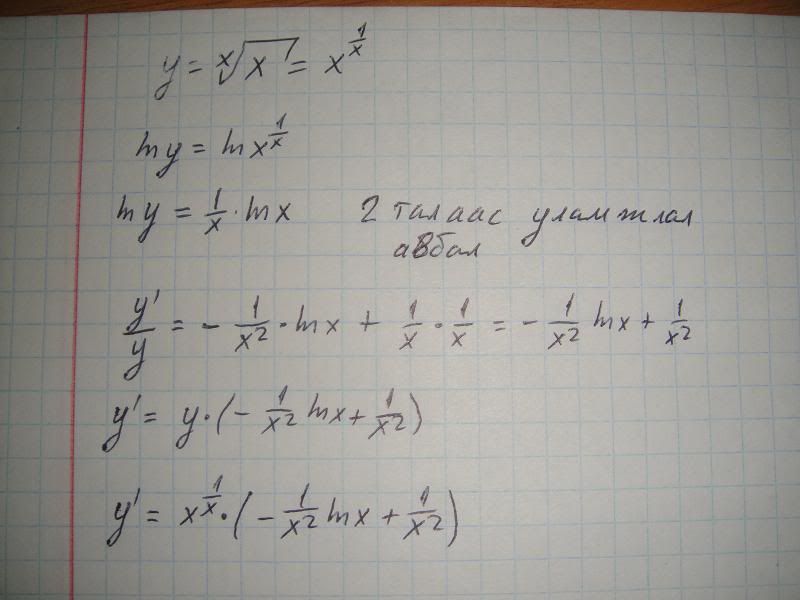 y = ˣ√x = x^(1/x)
ln y = ln x^(1/x)
ln y = 1/x · ln x 2 талаас уламжлал
авбал
y'/y = - 1/x² · ln x + 1/x · 1/x = - 1/x² ln x + 1/x²
y' = y · (- 1/x² ln x + 1/x²)
y' = x^(1/x) · (- 1/x² ln x + 1/x²)